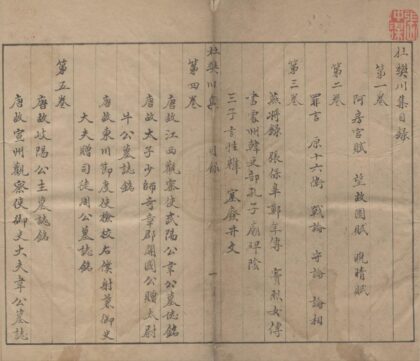 杜樊川集目錄
第一卷
阿房宮賦 望故園賦 晚晴賦
第二卷
罪言 原十六衛 戰論 守論 論相
第三卷
燕將錄 張保皋鄭年傳 竇烈女傳
書處州韓吏部孔子廟碑陰
三子言性辯 塞廢井文
杜樊川集 目錄 一
第四卷
唐故江西觀察使武陽公韋公墓誌銘
唐故太子少師奇章郡開國公贈太尉
牛公墓誌銘
唐故東川節度使檢校右僕射兼御史
大夫贈司徒周公墓誌銘
第五卷
唐故岐陽公主墓誌銘
唐故宣州觀察使御史大夫韋公墓誌